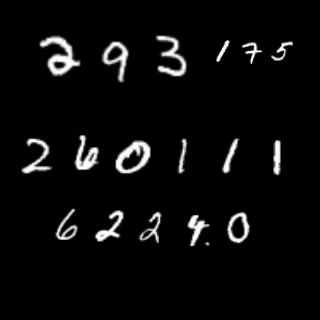 293 175
260111
62240